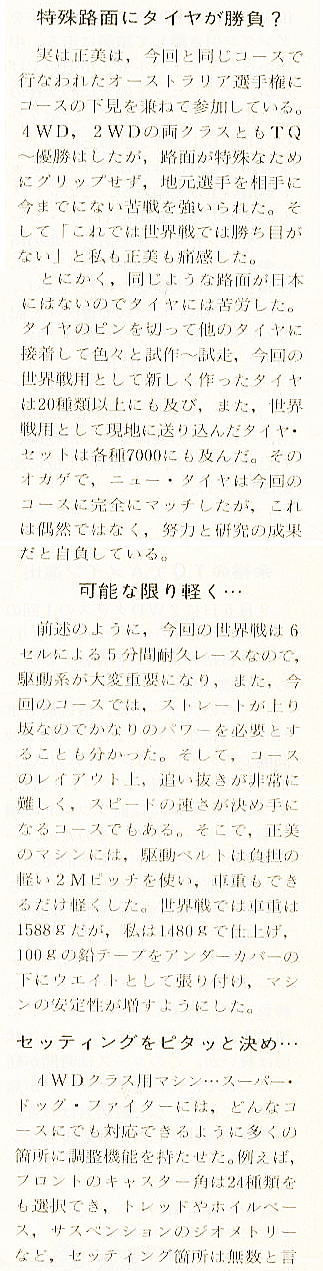 特殊路面にタイヤが勝負？
実は正美は，今回と同じコースで
行なわれたオーストラリア選手権に
コースの下見を兼ねて参加している。
4WD，2WDの両クラスともTQ
〜優勝はしたが，路面が特殊なため
にグリップせず，地元選手を相手に
今までにない苦戦を強いられた。そ
して「これでは世界戦では勝ち目が
ない」と私も正美も痛感した。
とにかく，同じような路面が日本
にはないのでタイヤには苦労した。
タイヤのピンを切って他のタイヤに
接着して色々と試作〜試走，今回の
世界戦用として新しく作ったタイヤ
は20種類以上にも及び，また，世界
戦用として現地に送り込んだタイヤ・
セットは各種7000にも及んだ。その
オカゲで，ニュー・タイヤは今回の
コースに完全にマッチしたが，これ
は偶然ではなく，努力と研究の成果
だと自負している。
可能な限り軽く…
前述のように，今回の世界戦は6
セルによる5分間耐久レースなので，
駆動系が大変重要になり，また，今
回のコースでは，ストレートが上り
坂なのでかなりのパワーを必要とす
ることも分かった。そして，コース
のレイアウト上，追い抜きが非常に
難しく，スピードの速さが決め手に
なるコースでもある。そこで，正美
のマシンには，駆動ベルトは負担の
軽い2Mピッチを使い，車重もでき
るだけ軽くした。世界戦では車重は
1588gだが，私は1480gで仕上げ，
100gの鉛テープをアンダーカバーの
下にウエイトとして張り付け，マシ
ンの安定性が増すようにした。
セッティングをピタッと決め…
4WDクラス用マシン…スーパー・
ドッグ・ファイターには，どんなコ
ースにでも対応できるように多くの
箇所に調整機能を持たせた。例えば，
フロントのキャスター角は24種類を
も選択でき，トレッドやホイルベー
ス，サスペンションのジオメトリー
など，セッティング箇所は無数と言